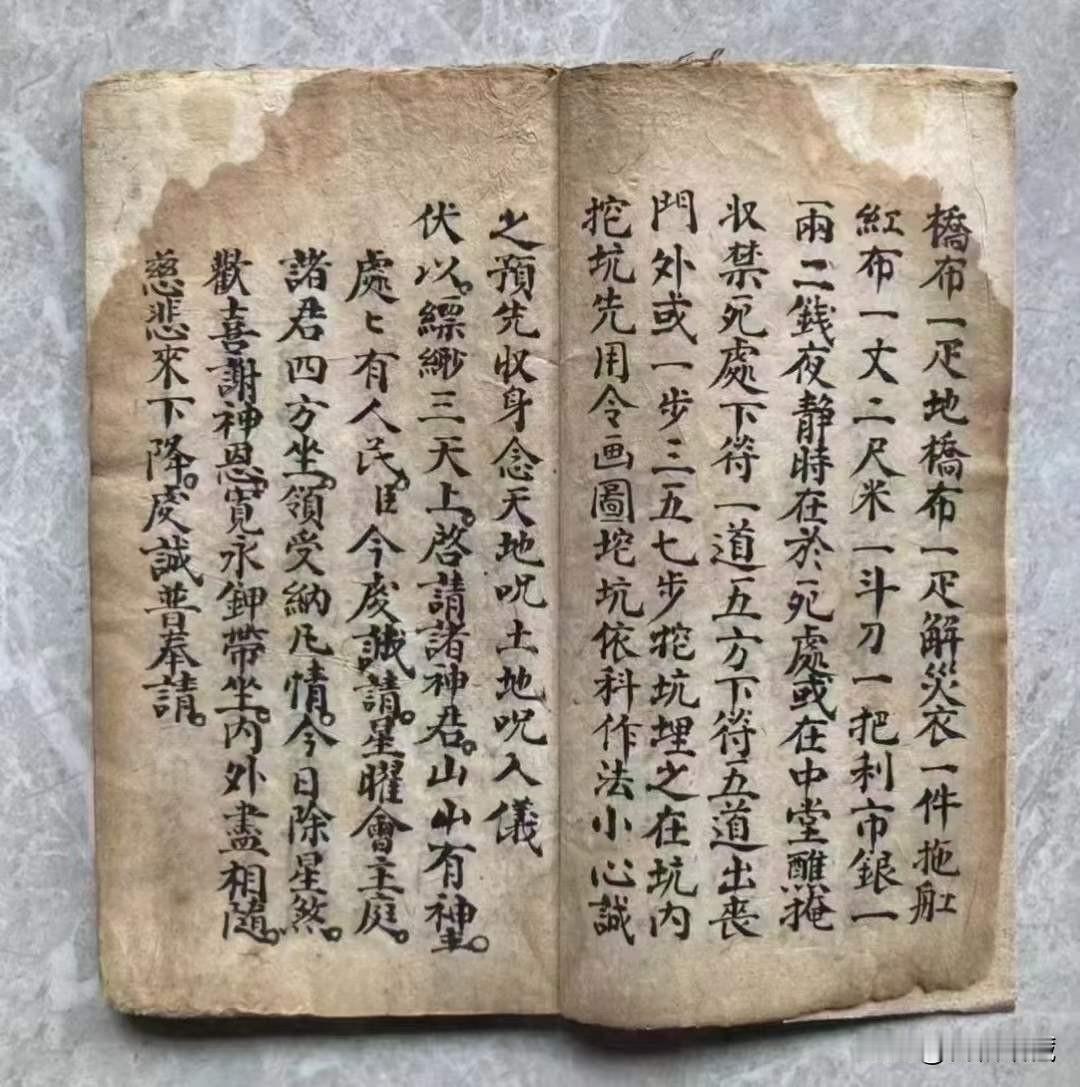 橋布一疋地橋布一疋解災衣一件拖舡
紅布一丈二尺米一斗刀一把利市銀一
兩二銭夜静時在於死處或在中堂醮掩
収禁死處下符一道五方下符五道出喪
門外或一步三五七步挖坑埋之在坑内
挖坑先用令画圖挖坑依科作法小心誠
之預先収身念天地咒土地咒入儀
伏以。縹緲三天上。啓請諸神君。山山有神主。
處々有人民。臣今虔誠請。星曜會主庭。
諸君四方坐。領受納凡情。今日除星煞。
歡喜謝神恩。寬永鉀帶坐。内外盡相随。
慈悲來下降。虔誠普奉請。